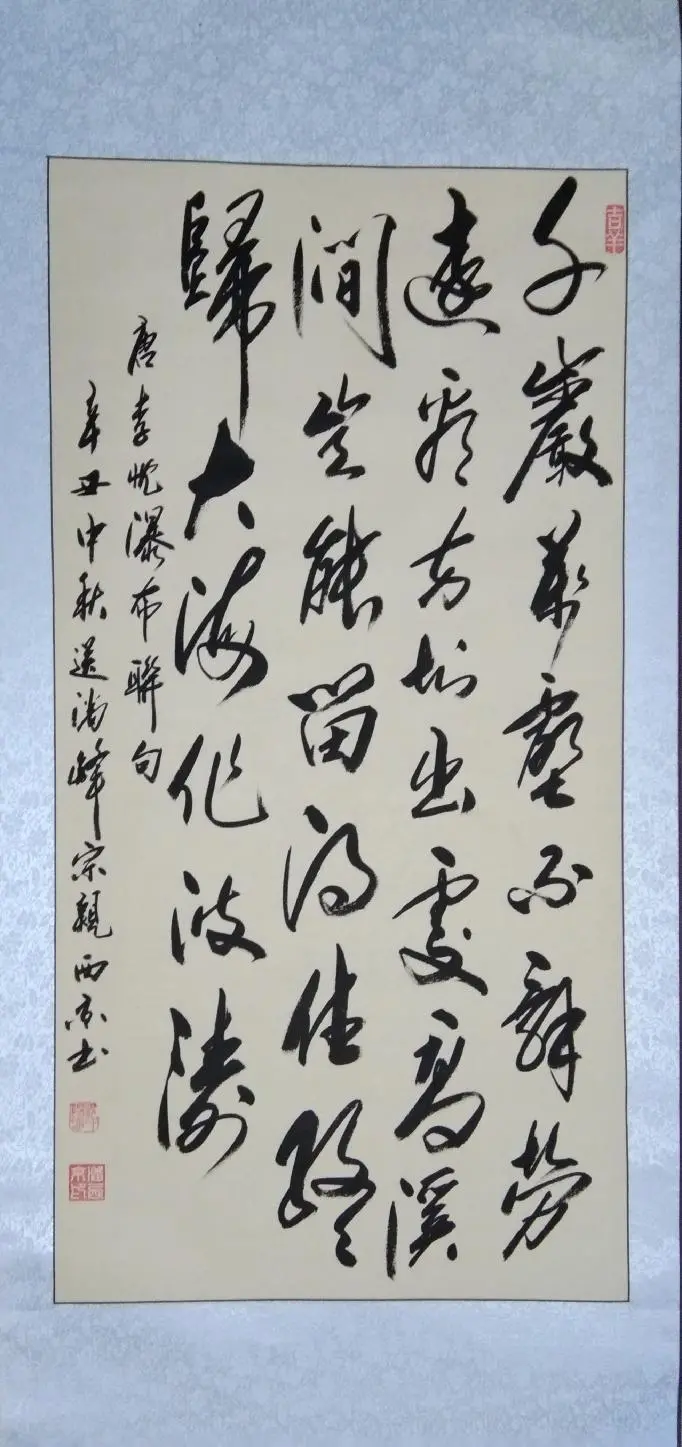 吉羊
千巖萬壑不辭勞
遠看方知出處高溪
澗豈能留得住終
歸大海作波濤
唐李忱瀑布聯句
辛丑中秋送潘峰宗親西京书